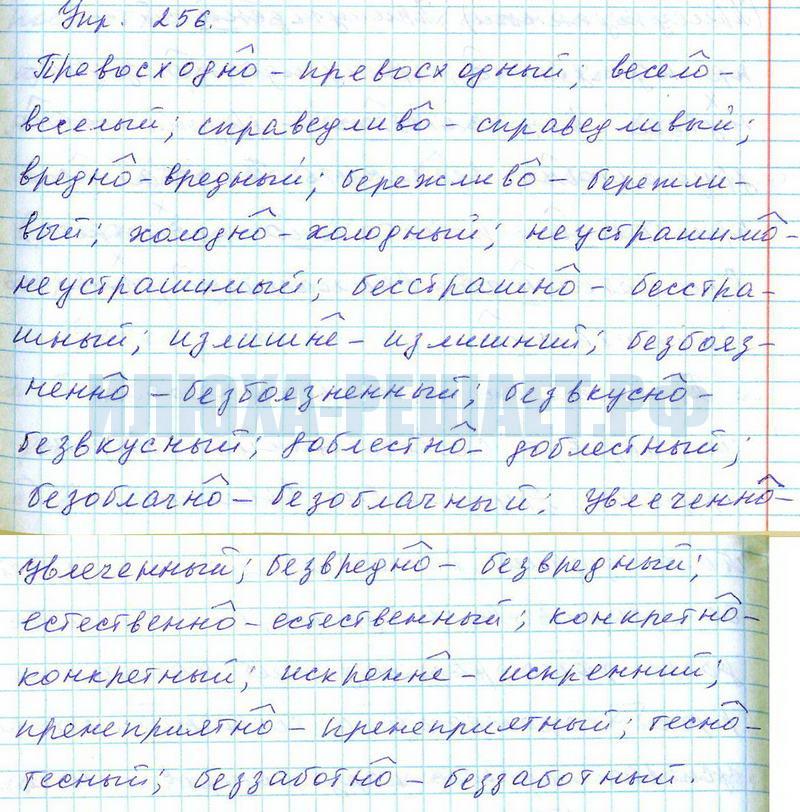 Упр. 256.
Превосходно - превосходный; весело -
веселый; справедливо - справедливый;
вредно - вредный; бережливо - бережли-
вый; холодно - холодный; неустрашимо -
неустрашимый; бесстрашно - бесстра-
шный; излишне - излишний; безбояз-
ненно - безбоязненный; безвкусно -
ИЛЮХА-РЕШАЕТ.РФ
безвкусный; доблестно - доблестный;
безоблачно - безоблачный; увлеченно -
увлеченный; безвредно - безвредный;
естественно - естественный; конкретно -
конкретный; искренне - искренний;
пренеприятно - пренеприятный; тесно -
тесный; беззаботно - беззаботный.